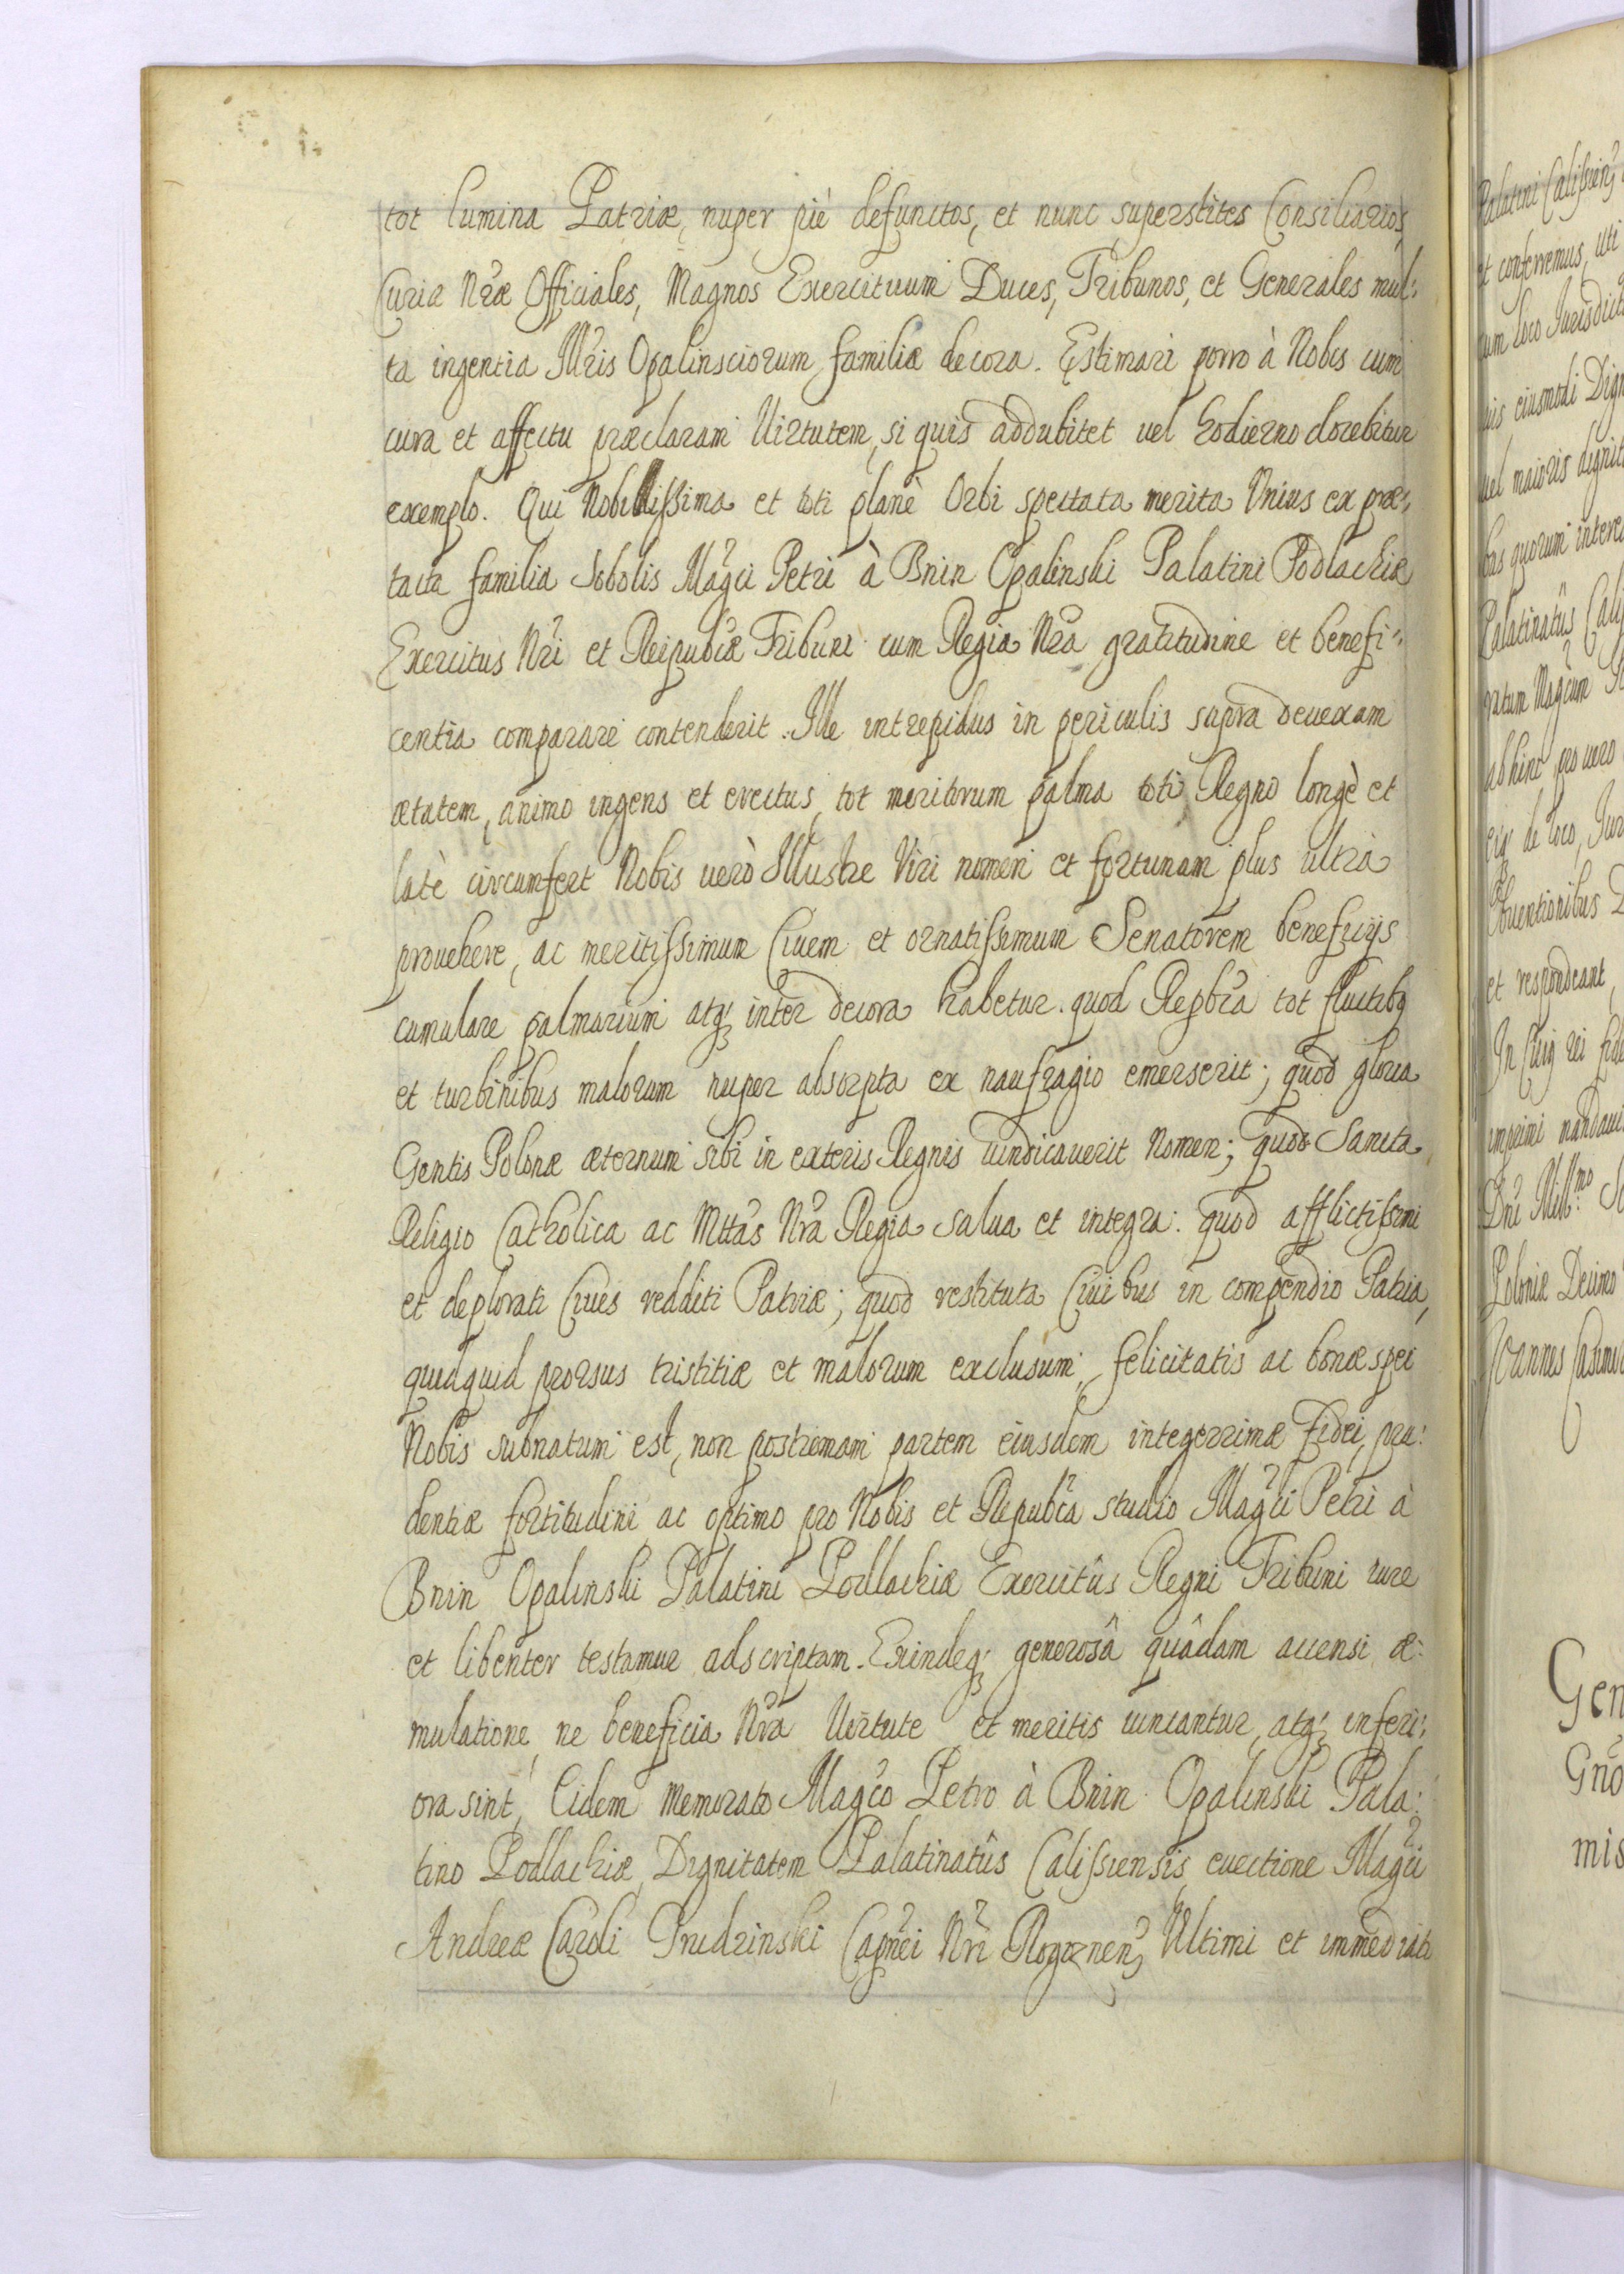 tot lumina Patriæ, nuper piè defunctos, et nunc superstites Consiliarios,
Curiæ Nræ Officiales, Magnos Exercituum Duces, Tribunos, et Generales mul:
ta ingentia Illris Opalinsciorum familiæ decora. Estimari porro à Nobis cum
cura et affectu præclaram Uirtutem, si quis addubitet uel hodierno docebitur
exemplo. Qui Nobilissima et toti planè Orbi spectata merita Unius ex præ:
tacta familia Sobolis Magci Petri à Bnin Opalinski Palatini Podlachiæ
Exercitus Nri et Reipubcæ Tribuni cum Regia Nra gratitudine et benefi:
centia comparari contenderit. Ille intrepidus in periculis supra deuexam
ætatem, animo ingens et erectus, tot meritorum palma toti Regno longè et
latè circumfert Nobis uerò Illustre Viri nomen et fortunam plus ultrà
prouehere, ac meritissimum Ciuem et ornatissimum Senatorem beneficijs
cumulare palmarium atq; inter decora habetur. quod Respbca tot fluctibq
et turbinibus malorum nuper absorpta ex naufragio emerserit; quod gloria
Gentis Polonæ æternum sibi in exteris Regnis uindicauerit Nomen; quod Sancta
Religio Catholica ac Mttas Nra Regia salua et integra: quod afflictissimi
et deplorati Ciues redditi Patriæ; quod restituta Ciuibus in compendio Patria,
quidquid prorsus tristitiæ et malorum exclusum, felicitatis ac bonæ spei
Nobis subnatum est, non postremam partem eiusdem integerrimæ Fidei, pru:
dentiæ fortitudini ac optimo pro Nobis et Republca studio Magci Petri à
Bnin Opalinski Palatini Podlachiæ Exercitûs Regni Tribuni iure
et libenter testamur adscriptam. Exindeq; generosâ quâdam accensi æ:
mulatione, ne beneficia Nra Uirtute et meritis uincantur, atq; inferi:
ora sint, Eidem memorato Magco Petro à Bnin Opalinski Pala:
tino Podlachiæ, Dignitatem Palatinatûs Calissiensis euectione Magci
Andreæ Caroli Grudzinski Capnei Nri Rogoznen; Ultimi et immediati